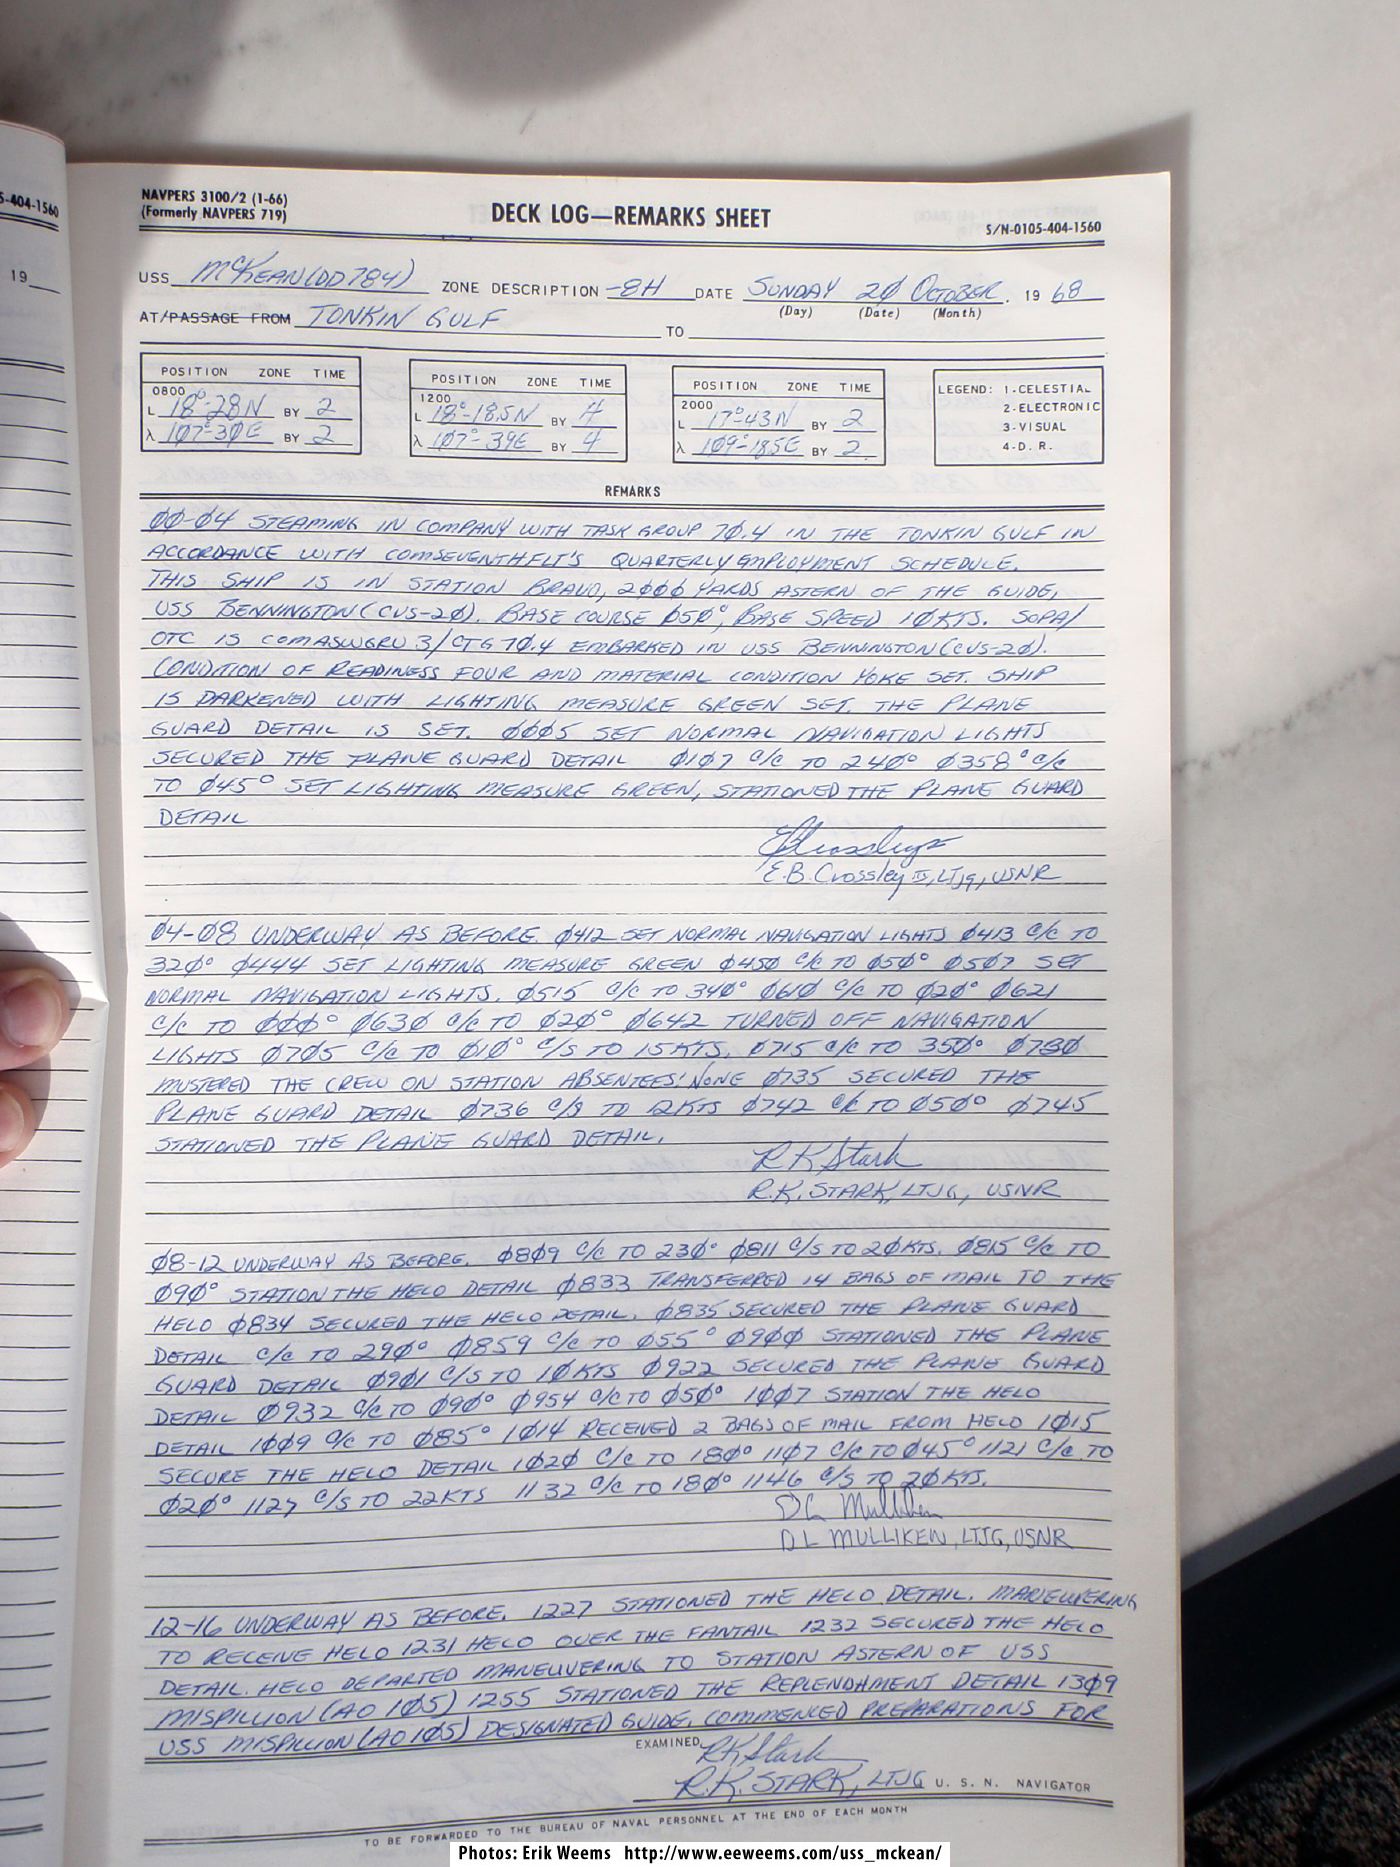 5-404-1560
19
NAVPERS 3100/2 (1-66)
(Formerly NAVPERS 719)
DECK LOG—REMARKS SHEET
S/N-0105-404-1560
USS McKEAN (DD784) ZONE DESCRIPTION -8H DATE SUNDAY 20 OCTOBER, 19 68
(Day) (Date) (Month)
AT/PASSAGE FROM TONKIN GULF TO
POSITION ZONE TIME
0800
L 18°-28N BY 2
λ 107°-30E BY 2
POSITION ZONE TIME
1200
L 18°-18.5N BY 4
λ 107°-39E BY 4
POSITION ZONE TIME
2000
L 17°-43N BY 2
λ 109°-18.5E BY 2
LEGEND: 1-CELESTIAL
2-ELECTRONIC
3-VISUAL
4-D. R.
REMARKS
00-04 STEAMING IN COMPANY WITH TASK GROUP 70.4 IN THE TONKIN GULF IN
ACCORDANCE WITH COMSEVENTHFLT'S QUARTERLY EMPLOYMENT SCHEDULE.
THIS SHIP IS IN STATION BRAVO, 2000 YARDS ASTERN OF THE GUIDE,
USS BENNINGTON (CVS-20). BASE COURSE 050°, BASE SPEED 10KTS. SOPA/
OTC IS COMASWGRU 3/CTG 70.4 EMBARKED IN USS BENNINGTON (CVS-20).
CONDITION OF READINESS FOUR AND MATERIAL CONDITION YOKE SET. SHIP
IS DARKENED WITH LIGHTING MEASURE GREEN SET. THE PLANE
GUARD DETAIL IS SET. 0005 SET NORMAL NAVIGATION LIGHTS
SECURED THE PLANE GUARD DETAIL 0107 C/C TO 240° 0358° C/C
TO 045° SET LIGHTING MEASURE GREEN, STATIONED THE PLANE GUARD
DETAIL
E.B. Crossley III, LTJg, USNR
04-08 UNDERWAY AS BEFORE. 0412 SET NORMAL NAVIGATION LIGHTS 0413 C/C TO
320° 0444 SET LIGHTING MEASURE GREEN 0450 C/C TO 050° 0507 SET
NORMAL NAVIGATION LIGHTS. 0515 C/C TO 340° 0610 C/C TO 020° 0621
C/C TO 000° 0630 C/C TO 020° 0642 TURNED OFF NAVIGATION
LIGHTS 0705 C/C TO 010° C/S TO 15KTS. 0715 C/C TO 350° 0730
MUSTERED THE CREW ON STATION ABSENTEES: NONE 0735 SECURED THE
PLANE GUARD DETAIL 0736 C/S TO 12KTS 0742 C/C TO 050° 0745
STATIONED THE PLANE GUARD DETAIL.
R K Stark
R.K. STARK, LTJG, USNR
08-12 UNDERWAY AS BEFORE. 0809 C/C TO 230° 0811 C/S TO 20KTS. 0815 C/C TO
090° STATION THE HELO DETAIL 0833 TRANSFERRED 14 BAGS OF MAIL TO THE
HELO 0834 SECURED THE HELO DETAIL. 0835 SECURED THE PLANE GUARD
DETAIL C/C TO 290° 0859 C/C TO 055° 0900 STATIONED THE PLANE
GUARD DETAIL 0901 C/S TO 10KTS 0922 SECURED THE PLANE GUARD
DETAIL 0932 C/C TO 090° 0954 C/C TO 050° 1007 STATION THE HELO
DETAIL 1009 C/C TO 085° 1014 RECEIVED 2 BAGS OF MAIL FROM HELO 1015
SECURE THE HELO DETAIL 1020 C/C TO 180° 1107 C/C TO 045° 1121 C/C TO
020° 1127 C/S TO 22KTS 1132 C/C TO 180° 1146 C/S TO 20KTS.
D L Mulliken
D L MULLIKEN, LTJG, USNR
12-16 UNDERWAY AS BEFORE. 1227 STATIONED THE HELO DETAIL. MANEUVERING
TO RECEIVE HELO 1231 HELO OVER THE FANTAIL 1232 SECURED THE HELO
DETAIL. HELO DEPARTED MANEUVERING TO STATION ASTERN OF USS
MISPILLION (AO 105) 1255 STATIONED THE REPLENDHMENT DETAIL 1309
USS MISPILLION (AO 105) DESIGNATED GUIDE, COMMENCED PREPARATIONS FOR
EXAMINED RK Stark
R.K. STARK, LTJG U. S. N. NAVIGATOR
TO BE FORWARDED TO THE BUREAU OF NAVAL PERSONNEL AT THE END OF EACH MONTH
Photos: Erik Weems http://www.eeweems.com/uss_mckean/